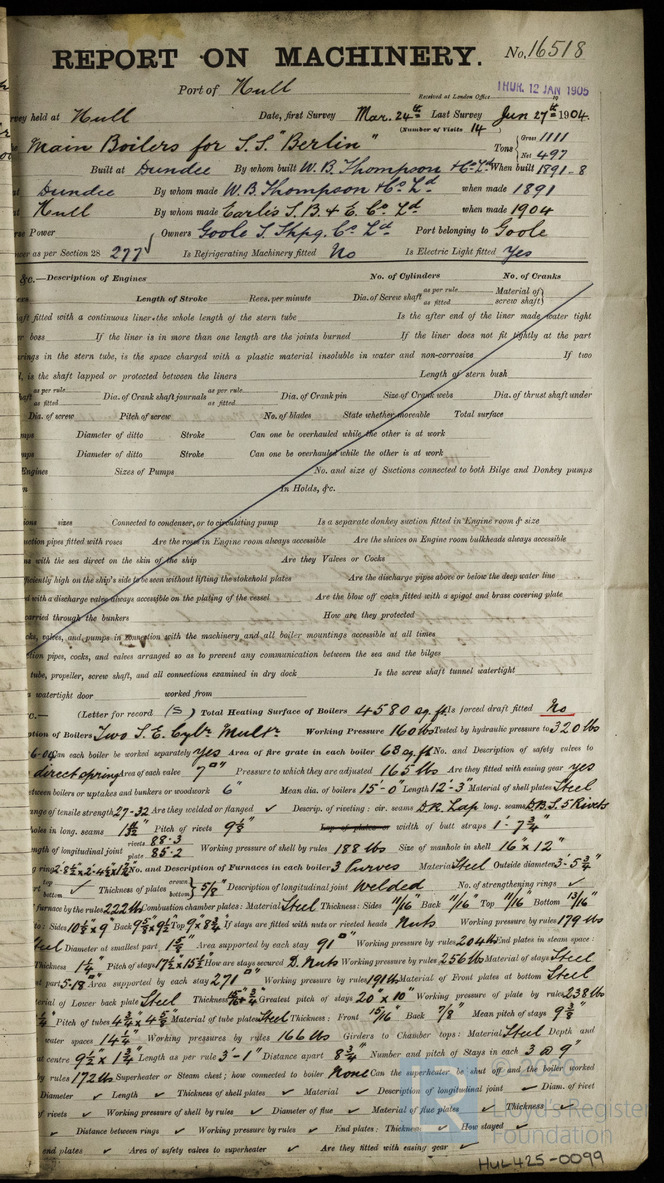 REPORT ON MACHINERY. No. 16518
Port of Hull
Received at London Office THUR. 12 JAN 1905
survey held at Hull Date, first Survey Mar. 24th Last Survey Jun 27th 1904.
(Number of Visits 14)
Main Boilers for S.S. "Berlin" Tons Gross 1111 Net 497
Built at Dundee By whom built W. B. Thompson & Co. Ld. When built 1891-8
at Dundee By whom made W. B. Thompson & Co. Ld. when made 1891
at Hull By whom made Earle's S. B. & E. Co. Ld. when made 1904
Power Owners Goole S. Shpg. Co. Ld. Port belonging to Goole
as per Section 28 277 Is Refrigerating Machinery fitted No Is Electric Light fitted Yes
&c.—Description of Engines No. of Cylinders No. of Cranks
Length of Stroke Revs. per minute Dia. of Screw shaft as per rule as fitted Material of screw shaft
shaft fitted with a continuous liner the whole length of the stern tube Is the after end of the liner made water tight
boss If the liner is in more than one length are the joints burned If the liner does not fit tightly at the part
in the stern tube, is the space charged with a plastic material insoluble in water and non-corrosive If two
is the shaft lapped or protected between the liners Length of stern bush
as per rule as fitted Dia. of Crank shaft journals as per rule as fitted Dia. of Crank pin Size of Crank webs Dia. of thrust shaft under
Dia. of screw Pitch of screw No. of blades State whether moveable Total surface
Diameter of ditto Stroke Can one be overhauled while the other is at work
Diameter of ditto Stroke Can one be overhauled while the other is at work
Engines Sizes of Pumps No. and size of Suctions connected to both Bilge and Donkey pumps
In Holds, &c.
sizes Connected to condenser, or to circulating pump Is a separate donkey suction fitted in Engine room & size
pipes fitted with roses Are the roses in Engine room always accessible Are the sluices on Engine room bulkheads always accessible
with the sea direct on the skin of the ship Are they Valves or Cocks
high on the ship's side to be seen without lifting the stokehold plates Are the discharge pipes above or below the deep water line
with a discharge valve always accessible on the plating of the vessel Are the blow off cocks fitted with a spigot and brass covering plate
carried through the bunkers How are they protected
valves, and pumps in connection with the machinery and all boiler mountings accessible at all times
pipes, cocks, and valves arranged so as to prevent any communication between the sea and the bilges
tube, propeller, screw shaft, and all connections examined in dry dock Is the screw shaft tunnel watertight
watertight door worked from
&c.— (Letter for record (S) Total Heating Surface of Boilers 4580 sq. ft. Is forced draft fitted No
Description of Boilers Two S. E. Cylr. Multr. Working Pressure 160 lbs Tested by hydraulic pressure to 320 lbs
Can each boiler be worked separately yes Area of fire grate in each boiler 63 sq. ft No. and Description of safety valves to
direct spring Area of each valve 7□" Pressure to which they are adjusted 165 lbs Are they fitted with easing gear yes
between boilers or uptakes and bunkers or woodwork 6" Mean dia. of boilers 15'-0" Length 12'-3" Material of shell plates Steel
range of tensile strength 27-32 Are they welded or flanged ✓ Descrip. of riveting: cir. seams D.R. Lap long. seams D.B.S. 5 Rivets
holes in long. seams Pitch of rivets 9½" Lap of plates or width of butt straps 1'-7¾"
of longitudinal joint rivets 88.3 plate 85.2 Working pressure of shell by rules 188 lbs Size of manhole in shell 16" x 12"
No. and Description of Furnaces in each boiler 3 Purves Material Steel Outside diameter 3'-5¾"
top bottom ✓ Thickness of plates crown bottom 5/8" Description of longitudinal joint Welded No. of strengthening rings ✓
furnace by the rules 222 lbs Combustion chamber plates: Material Steel Thickness: Sides 11/16" Back 11/16" Top 11/16" Bottom 13/16"
to: Sides 10½ x 9" Back 9⅝ x 9½ Top 9" x 8¾ If stays are fitted with nuts or riveted heads Nuts Working pressure by rules 179 lbs
Steel Diameter at smallest part 1⅝" Area supported by each stay 91□" Working pressure by rules 204 lbs End plates in steam space:
Thickness 1¼" Pitch of stays 17½ x 15½ How are stays secured D. Nuts Working pressure by rules 256 lbs Material of stays Steel
part 5.18□" Area supported by each stay 271□" Working pressure by rules 191 lbs Material of Front plates at bottom Steel
Material of Lower back plate Steel Thickness Greatest pitch of stays 20" x 10" Working pressure of plate by rules 238 lbs
Pitch of tubes 4¾" x 4⅝" Material of tube plates Steel Thickness: Front 15/16" Back 7/8" Mean pitch of stays 9⅜"
water spaces 14¼" Working pressures by rules 166 lbs Girders to Chamber tops: Material Steel Depth and
at centre 9½" x 1¾" Length as per rule 3'-1" Distance apart 8¾" Number and pitch of Stays in each 3 @ 9"
by rules 172 lbs Superheater or Steam chest; how connected to boiler None Can the superheater be shut off and the boiler worked
Diameter ✓ Length ✓ Thickness of shell plates ✓ Material ✓ Description of longitudinal joint ✓ Diam. of rivet
of rivets ✓ Working pressure of shell by rules ✓ Diameter of flue ✓ Material of flue plates ✓ Thickness ✓
✓ Distance between rings ✓ Working pressure by rules ✓ End plates: Thickness ✓ How stayed ✓
end plates ✓ Area of safety valves to superheater ✓ Are they fitted with easing gear ✓
© 2020
Lloyd's Register
Foundation
HUL425-0099